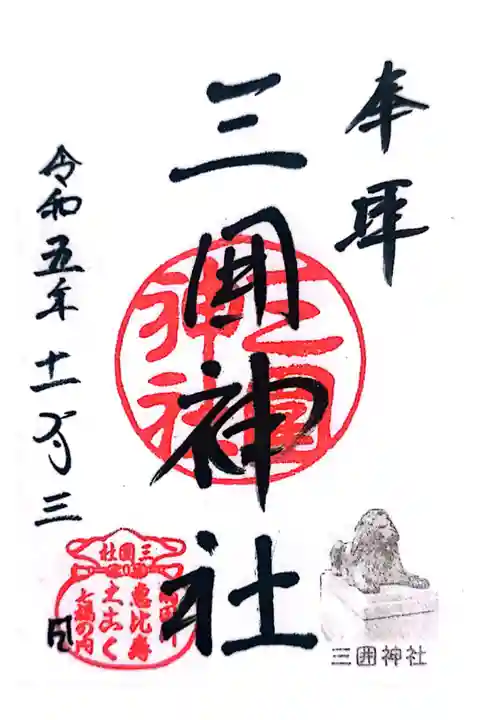 奉拝
三囲神社
令和五年十一月三日
三囲神社
三囲社
恵比寿
大こく
七福の内
三囲神社